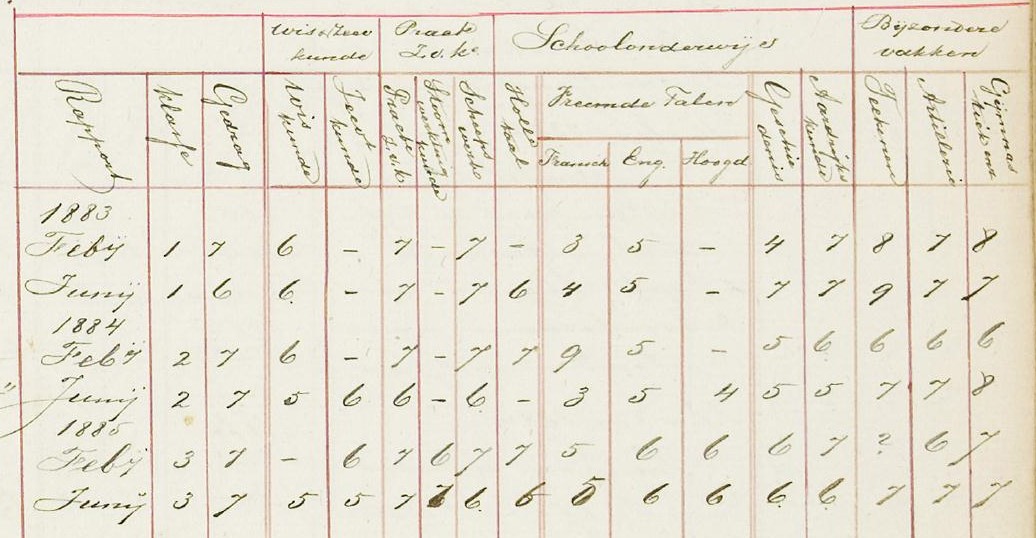 Wis & Zee Praak Schoolonderwijs Bijzondere
kunde Z.v.k. vakken
Rapport klasse Gedrag Wis kunde Zeevt kunde Prackt Z.v.k. Stoom werktuig kunde Scheeps werk Holl taal Vreemde Talen Geschie denis Aardrijks kunde Teekenen Artillerie Gymnas tiek enz
Fransch Eng. Hoogd
1883
Febij 1 7 6 – 7 – 7 – 3 5 – 4 7 8 7 8
Junij 1 6 6. – 7 – 7 6 4 5 – 7 7 9 7 7
1884
Febij 2 7 6 – 7 – 7 7 9 5 – 5 6 6 6 6
" Junij 2 7 5 6 6 – 6. – 3 5 4 5 5 7 7 8
1885
Febij 3 7 – 6 7 6 7 7 5 6 6 6 7 2 6 7
Junij 3 7 5 5 7 7 6. 6 5 6 6 6. 6. 7 7 7